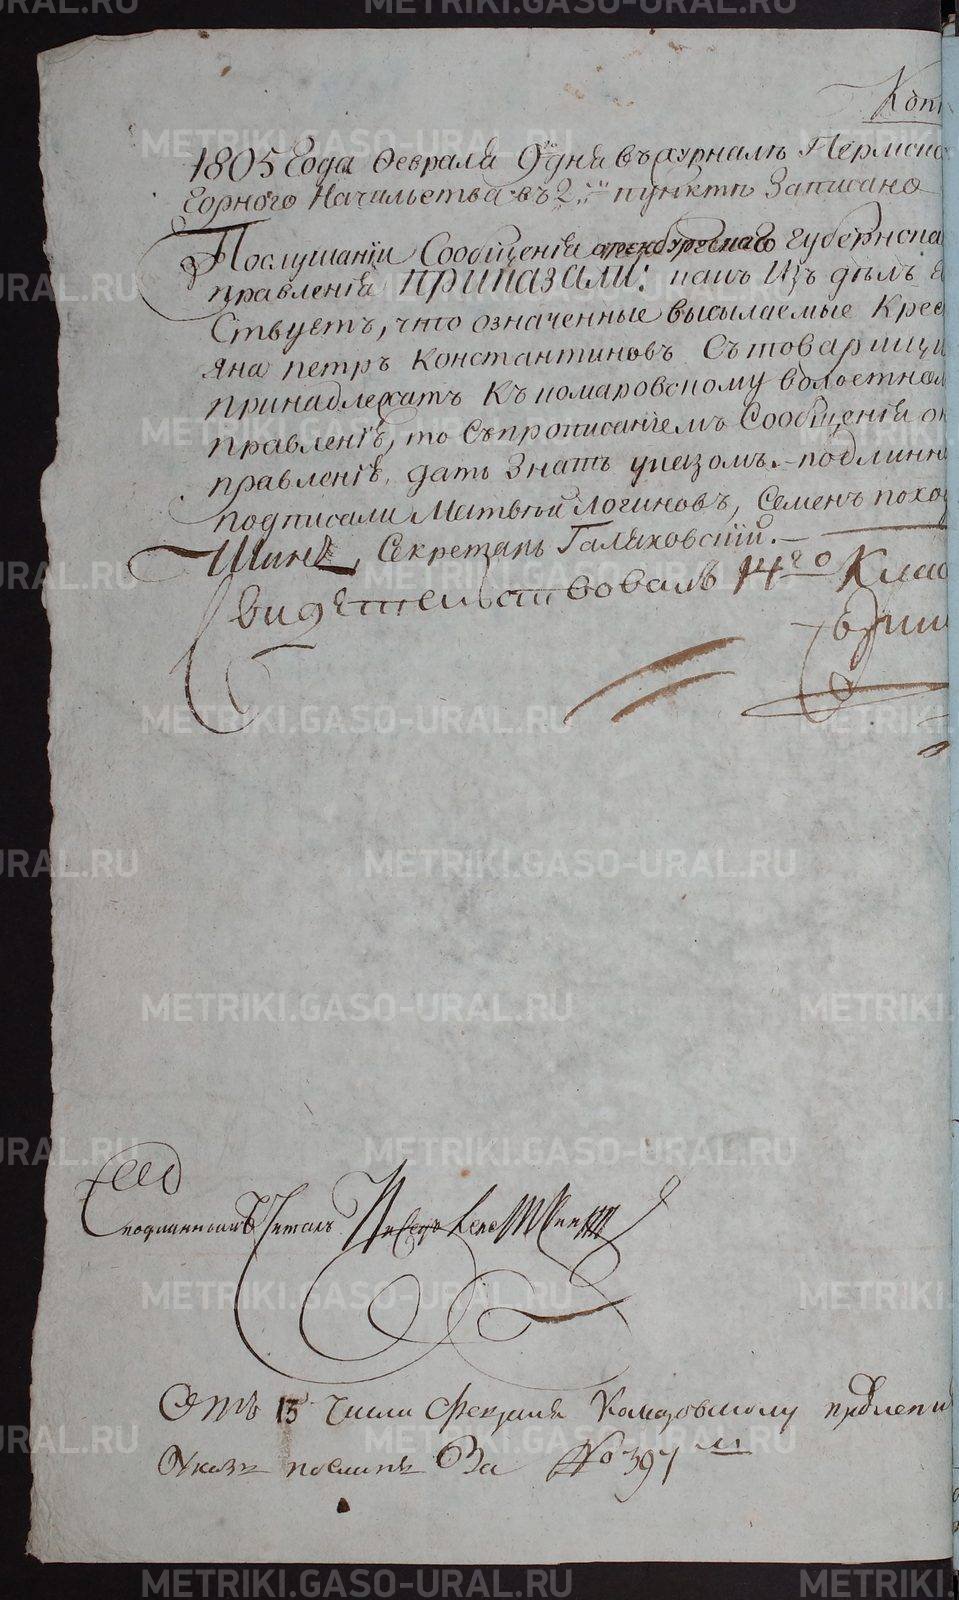 Копі
1805 Года Февраля 9го дня въ журналѣ Пермска
Горного Начальства въ 2м пунктѣ Записано
Послушаніи Сообщенія оренбургскаго губернска
правленія приказали: какъ Изъ дѣлъ я
Ствуетъ, что означенные высылаемые Крес
яна петръ Константиновъ Стоварищи
принадлежатъ Къ комаровскому волостном
правленіе, то Спрописаніемъ Сообщенія о
правленіе, дать Знать указомъ. подлинно
подписали Матвей Логиновъ, Семенъ похо
Шинъ, Секретарь Галяховскій.
Свидетельствовалъ 14го Клас
METRIKI.GASO-URAL.RU
Сподлиннымъ Читалъ
Отъ 15 Числа Февраля Комаровскому правлени
Указъ посланъ За №397м